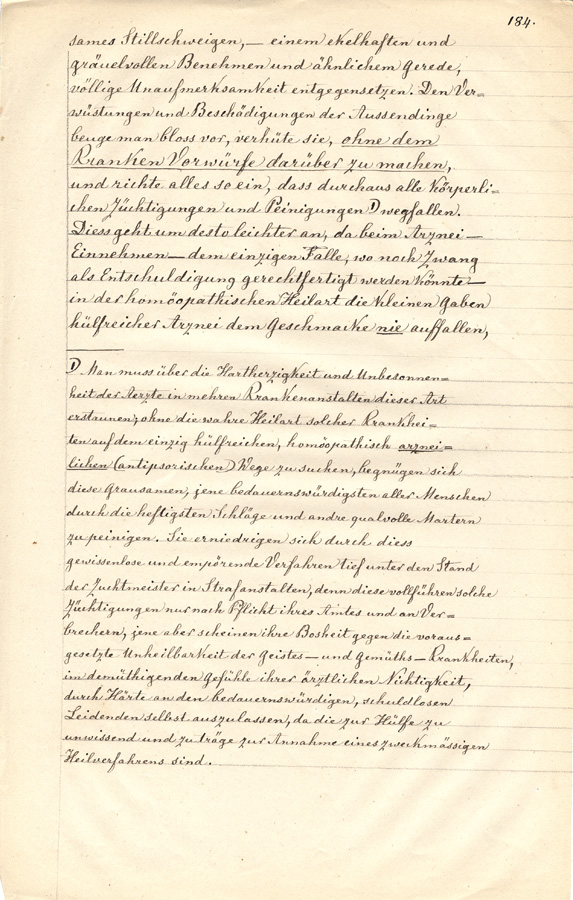 184.
sames Stillschweigen, — einem ekelhaften und
gräuelvollen Benehmen und ähnlichem Gerede,
völlige Unaufmerksamkeit entgegensetzen. Den Ver=
wüstungen und Beschädigungen der Aussendinge
beuge man bloss vor, verhüte sie, ohne dem
Kranken Vorwürfe darüber zu machen,
und richte alles so ein, dass durchaus alle Körperli=
chen Züchtigungen und Peinigungen 1) wegfallen.
Diess geht um desto leichter an, da beim Arznei—
Einnehmen — dem einzigen Falle, wo noch Zwang
als Entschuldigung gerechtfertigt werden könnte —
in der homöopathischen Heilart die kleinen Gaben
hülfreicher Arznei dem Geschmacke nie auffallen,
1) Man muss über die Hartherzigkeit und Unbesonnen=
heit der Aerzte in mehren Krankenanstalten dieser Art
erstaunen; ohne die wahre Heilart solcher Krankhei=
ten auf dem einzig hülfreichen, homöopathisch arznei=
lichen (antipsorischen) Wege zu suchen, begnügen sich
diese Grausamen, jene bedauernswürdigsten aller Menschen
durch die heftigsten Schläge und andre qualvolle Martern
zu peinigen. Sie erniedrigen sich durch diess
gewissenlose und empörende Verfahren tief unter den Stand
der Zuchtmeister in Strafanstalten, denn diese vollführen solche
Züchtigungen nur nach Pflicht ihres Amtes und an Ver=
brechern, jene aber scheinen ihre Bosheit gegen die voraus=
gesetzte Unheilbarkeit der Geistes— und Gemüths—Krankheiten,
im demüthigenden Gefühle ihrer ärztlichen Nichtigkeit,
durch Härte an den bedauernswürdigen, schuldlosen
Leidenden selbst auszulassen, da die zur Hülfe zu
unwissend und zu träge zur Annahme eines zweckmässigen
Heilverfahrens sind.